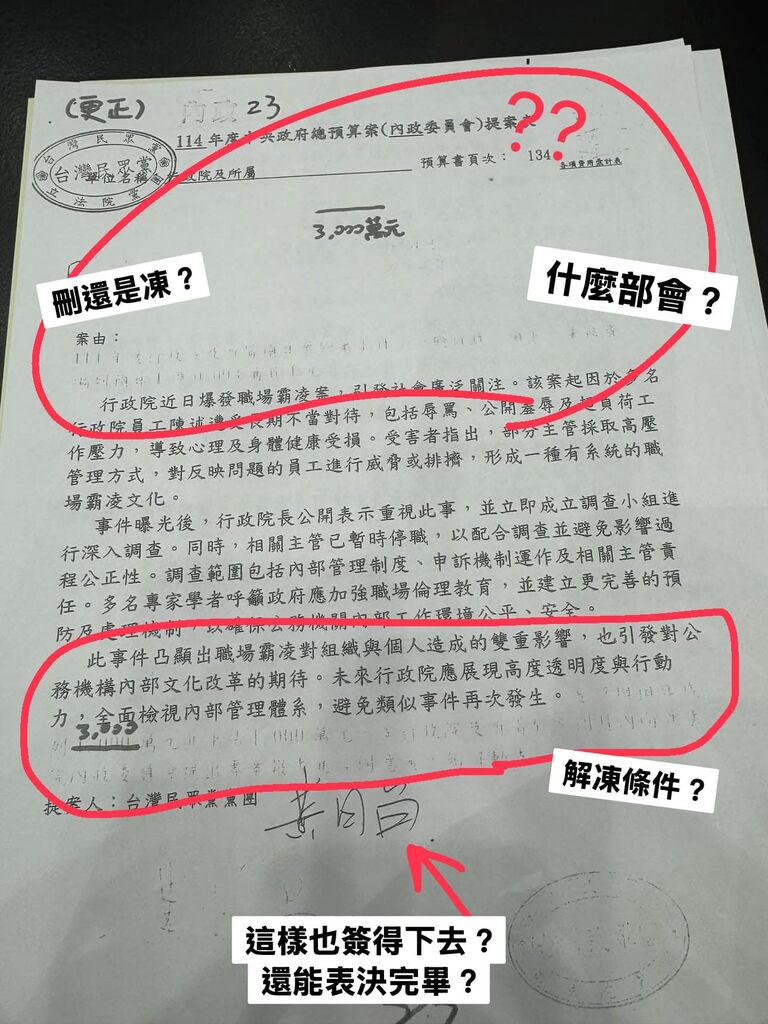 (更正) 內政 23
114年度中央政府總預算案(內政委員會)提案表
??
台灣民眾黨
台灣民眾黨
立法院黨
單位名稱:行政院及所屬
預算書頁次: 134
各項費用彙計表
3,000萬元
刪還是凍?
什麼部會?
案由:
行政院近日爆發職場霸凌案,引發社會廣泛關注。該案起因於多名
行政院員工陳述遭受長期不當對待,包括辱罵、公開羞辱及超負荷工
作壓力,導致心理及身體健康受損。受害者指出,部分主管採取高壓
管理方式,對反映問題的員工進行威脅或排擠,形成一種有系統的職
場霸凌文化。
事件曝光後,行政院長公開表示重視此事,並立即成立調查小組進
行深入調查。同時,相關主管已暫時停職,以配合調查並避免影響過
程公正性。調查範圍包括內部管理制度、申訴機制運作及相關主管責
任。多名專家學者呼籲政府應加強職場倫理教育,並建立更完善的預
防及處理機制,以確保公務機關內部工作環境公平、安全。
此事件凸顯出職場霸凌對組織與個人造成的雙重影響,也引發對公
務機構內部文化改革的期待。未來行政院應展現高度透明度與行動
力,全面檢視內部管理體系,避免類似事件再次發生。
3,000
解凍條件?
提案人:台灣民眾黨黨團
黃國昌
這樣也簽得下去?
還能表決完畢?